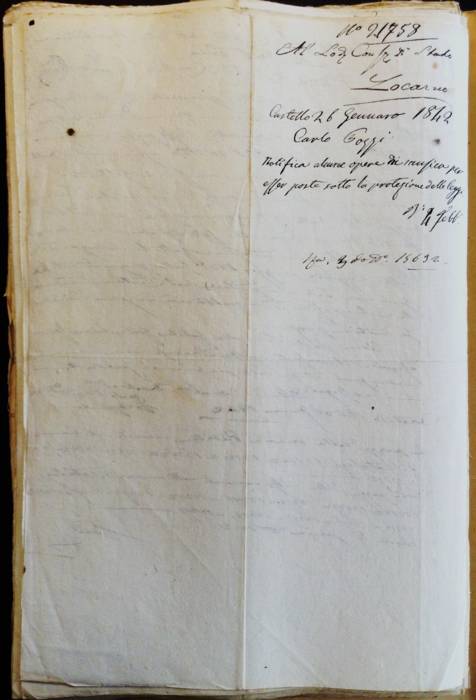 N° 21758
Al Lod. Consig. di Stato
Locarno
Castello 26 Gennaro 1842
Carlo Pozzi
Notifica alcune opere di musica per
esser poste sotto la protezione delle leggi.
Febb.
1863